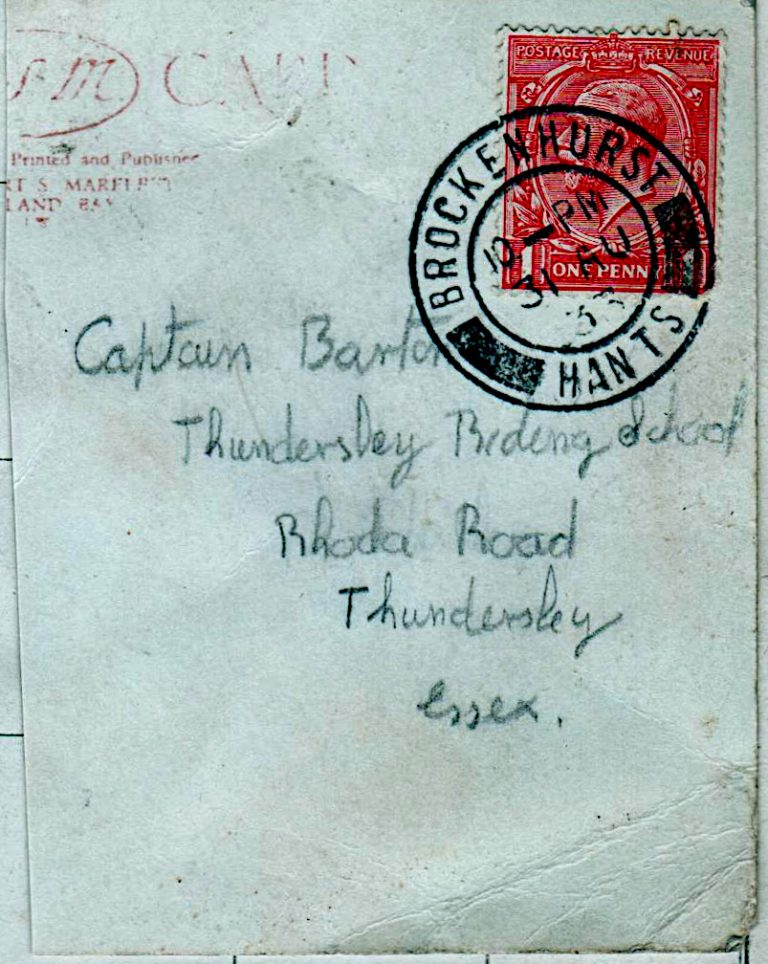 CARD
Printed and Published
LAND BAY
POSTAGE REVENUE
ONE PENNY
BROCKENHURST
PM
31 AU
HANTS
Captain
Thundersley Riding School
Rhoda Road
Thundersley
Essex.